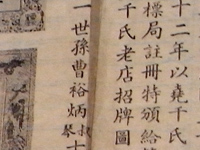 十二年以堯千氏
標局註冊特頒給
千氏老店招牌圖
一世孫曹裕炳